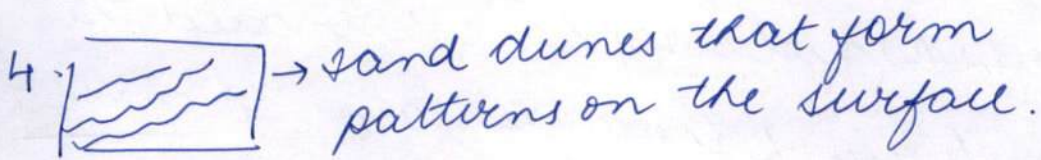 4. → sand dunes that form
patterns on the surface.